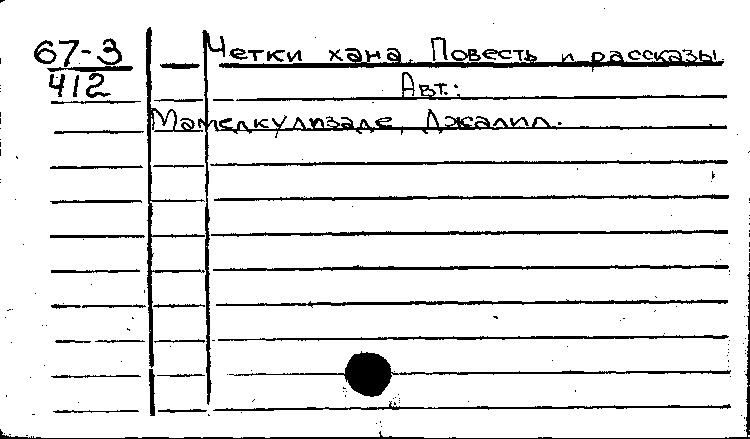 67-3 — Четки хана. Повесть и рассказы
412 Авт.:
Мамедкулизаде, Джалил.